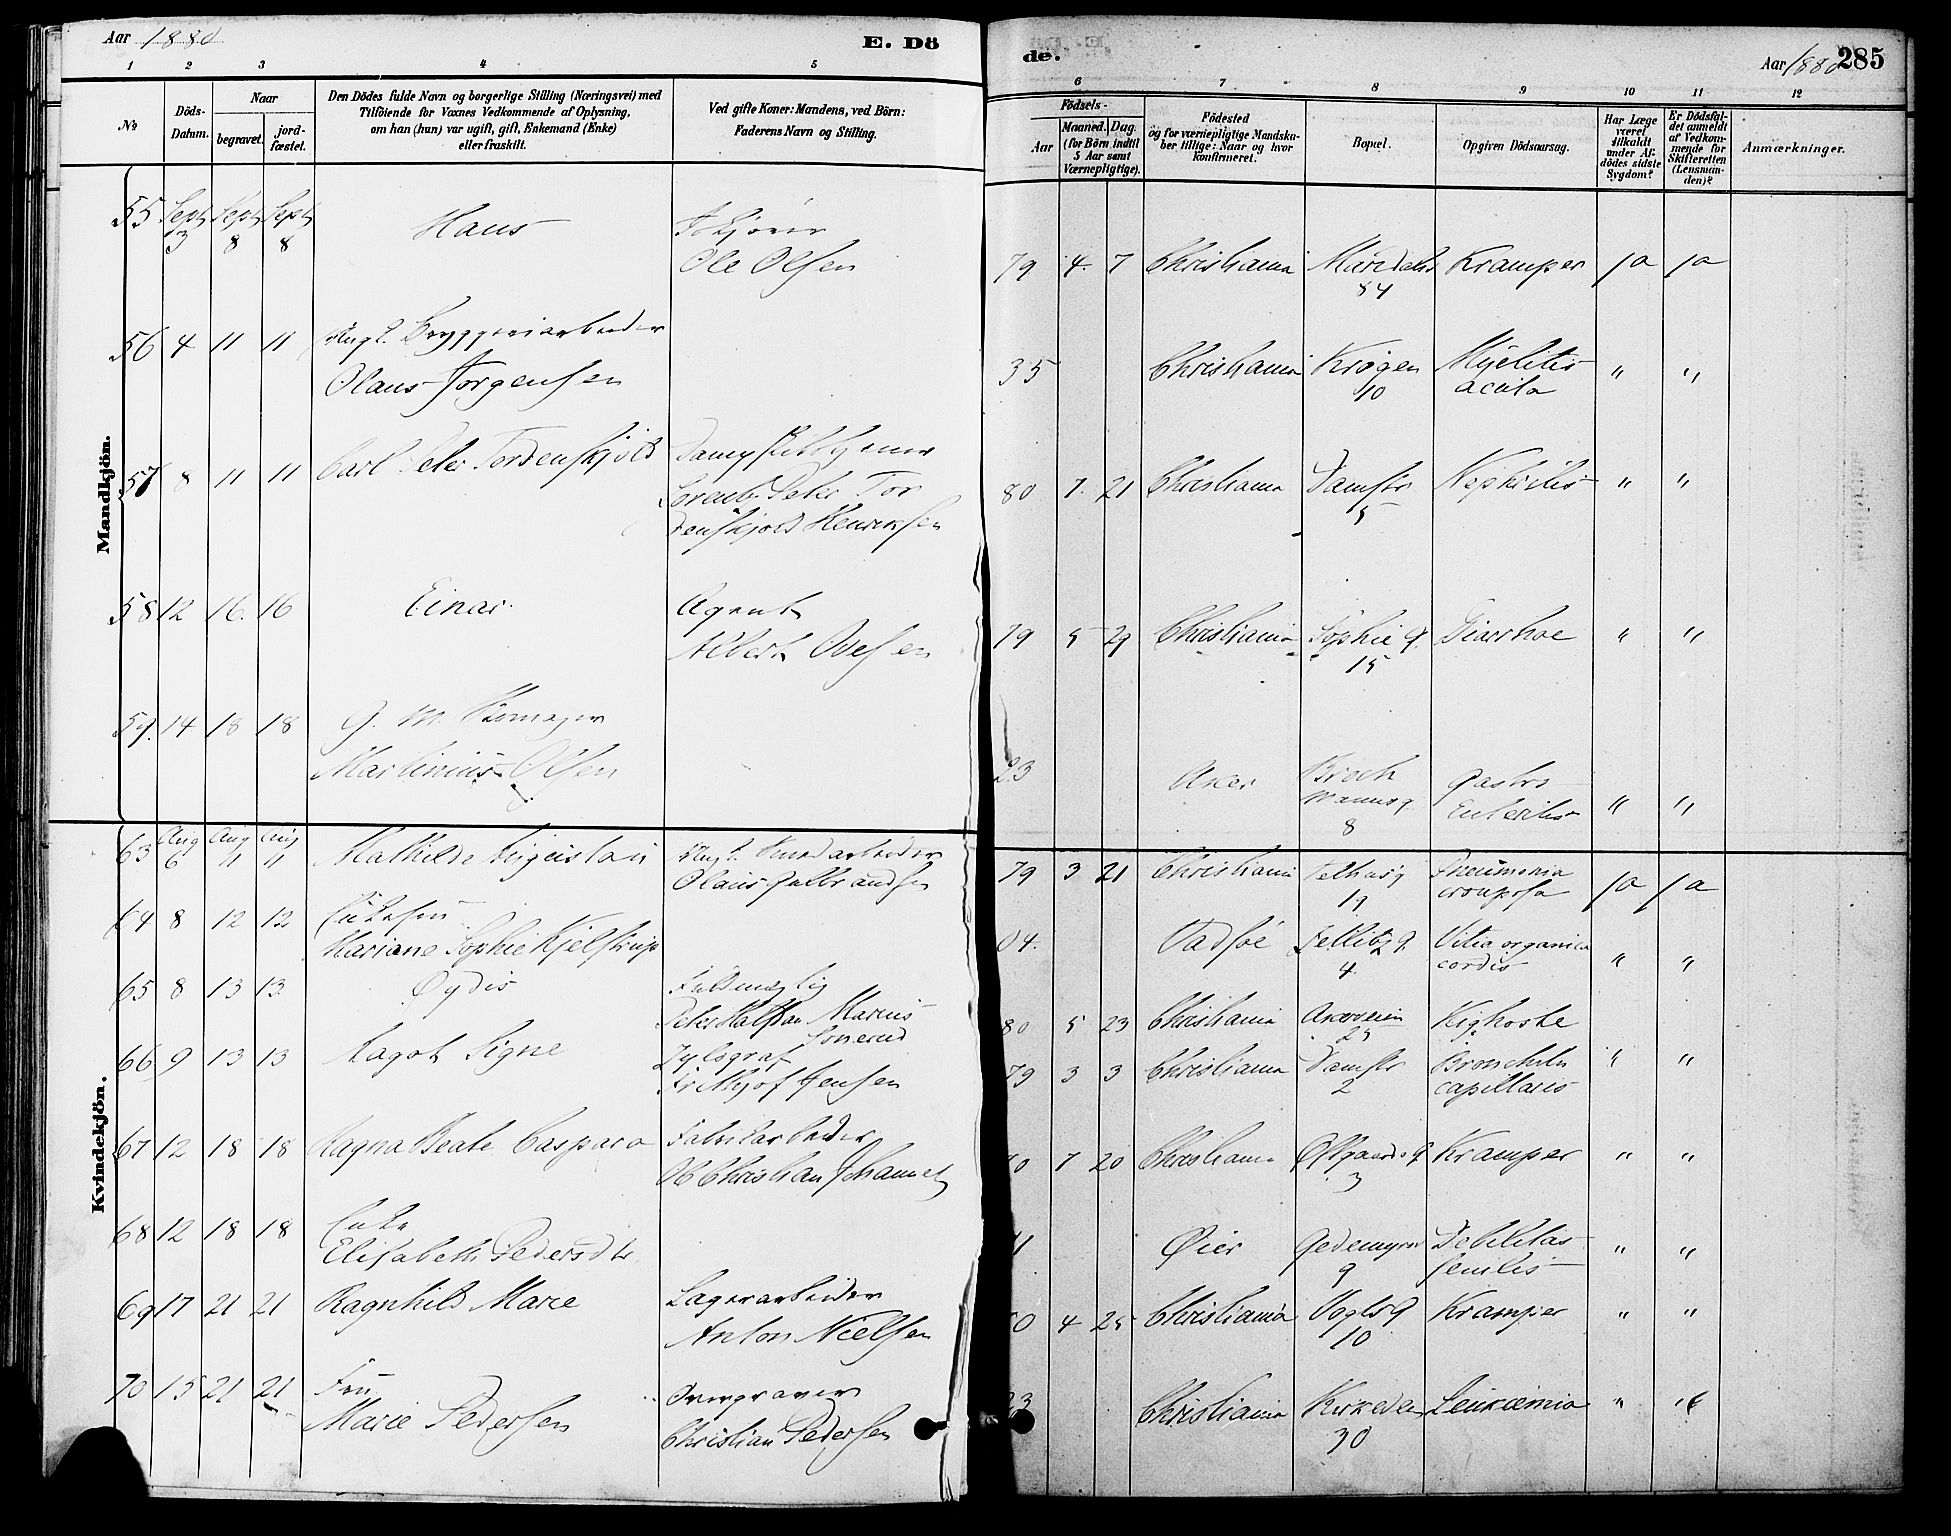 Aar 1880
E. Dö
1 2 3 4 5
No
Döds-Datum.
Naar
begravet.
jordfæstet.
Den Dödes fulde Navn og borgerlige Stilling (Næringsvei) med
Tilföiende for Voxnes Vedkommende af Oplysning,
om han (hun) var ugift, gift, Enkemand (Enke)
eller fraskilt.
Ved gifte Koner: Mandens, ved Börn:
Faderens Navn og Stilling.
Mandkjön.
55 Sept 3 Sept 8 Sept 8 Hans
Ole Olsen
56 4 11 11 Bryggeriarbeider
Olaus Jörgensen
57 8 11 11 Carl Peter Tordenskjold
Peter Tor
denskjold Henriksen
58 12 16. 16 Einar. Agent
Albert Ovesen
59. 14 18 18 G. M.
Martinius Olsen
Kvindekjön.
63 Aug 6 Aug 11 Aug 11 Mathilde Augusta
Olaus Gulbrandsen
64 8 12 12
Mariane Sophie Kjelstrup
65 8 13 13 Øydis Fuldmægtig
Peter Halfdan Marius
66 9 13 13 Aagot Signe
Frithjof Jensen
67 12 18 18 Ragna Beate Caspara Fabrikarbeider
Ole Christian Johannes
68 12 18 18 Enke
Elisabeth Pedersdtr.
69 17 21 21 Ragnhild Marie Lagerarbeider
Anton Nielsen
70 15 21 21 Fru
Marie Pedersen
Christian Pedersen
de.
Aar 1880 285
6 7 8 9 10 11 12
Födsels-
Aar
Maaned. Dag.
(for Börn indtil
5 Aar samt
Værnepligtige).
Födested
og for værnepligtige Mandskaber tillige: Naar og hvor
konfirmeret.
Bopæl.
Opgiven Dödsaarsag.
Har Læge
været
tilkaldt
under Afdödes sidste
Sygdom?
Er Dödsfaldet anmeldt
af Vedkommende for
Skifteretten
(Lensmanden)?
Anmærkninger.
79 4. 7 Christiania Maridals 84 Kramper ja ja
35 Christiania Krogen 10 Myelitis acuta " "
80 7. 21 Christiania Damstr 5 Nephritis " "
79 5 29 Christiania Sophie g. 15 Diarrhoe " "
23 Aker Brochmanns g 8 Gastro Enteritis " "
79 3 21 Christiania 19 Pneumonia crouposa ja ja
04. Vadsöe 4 Vitia organica cordis " "
80 5 23 Christiania Akersveien 25 Kighoste
79 3 3 Christiania Damstr 2 Bronchitis capillaris " "
7 20 Christiania 3 Kramper " "
Øier Gedemyrs 9 Debilitas senilis " "
4 25 Christiania Vogts g 10 Kramper " "
Christiania Kirkeveien 30 Leukæmia " "